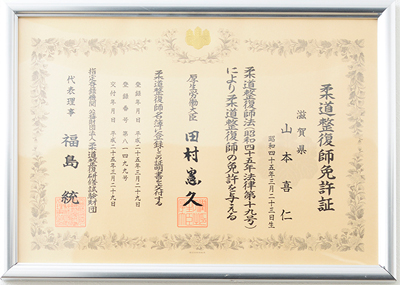 柔道整復師免許証
滋賀県
山本喜仁
昭和四十五年二月二十三日生
柔道整復師法(昭和四十五年法律第十九号)
により柔道整復師の免許を与える
厚生労働大臣 田村憲久
柔道整復師名簿に登録しこの証明書を交付する
登録年月日 平成二十五年三月二十九日
登録番号
交付年月日 平成二十五年三月二十九日
指定登録機関 公益財団法人柔道整復研修試験財団
代表理事 福島統